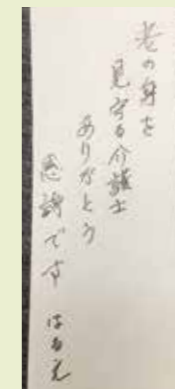 老の身を
見守る介護士
ありがとう
感謝です はるえ